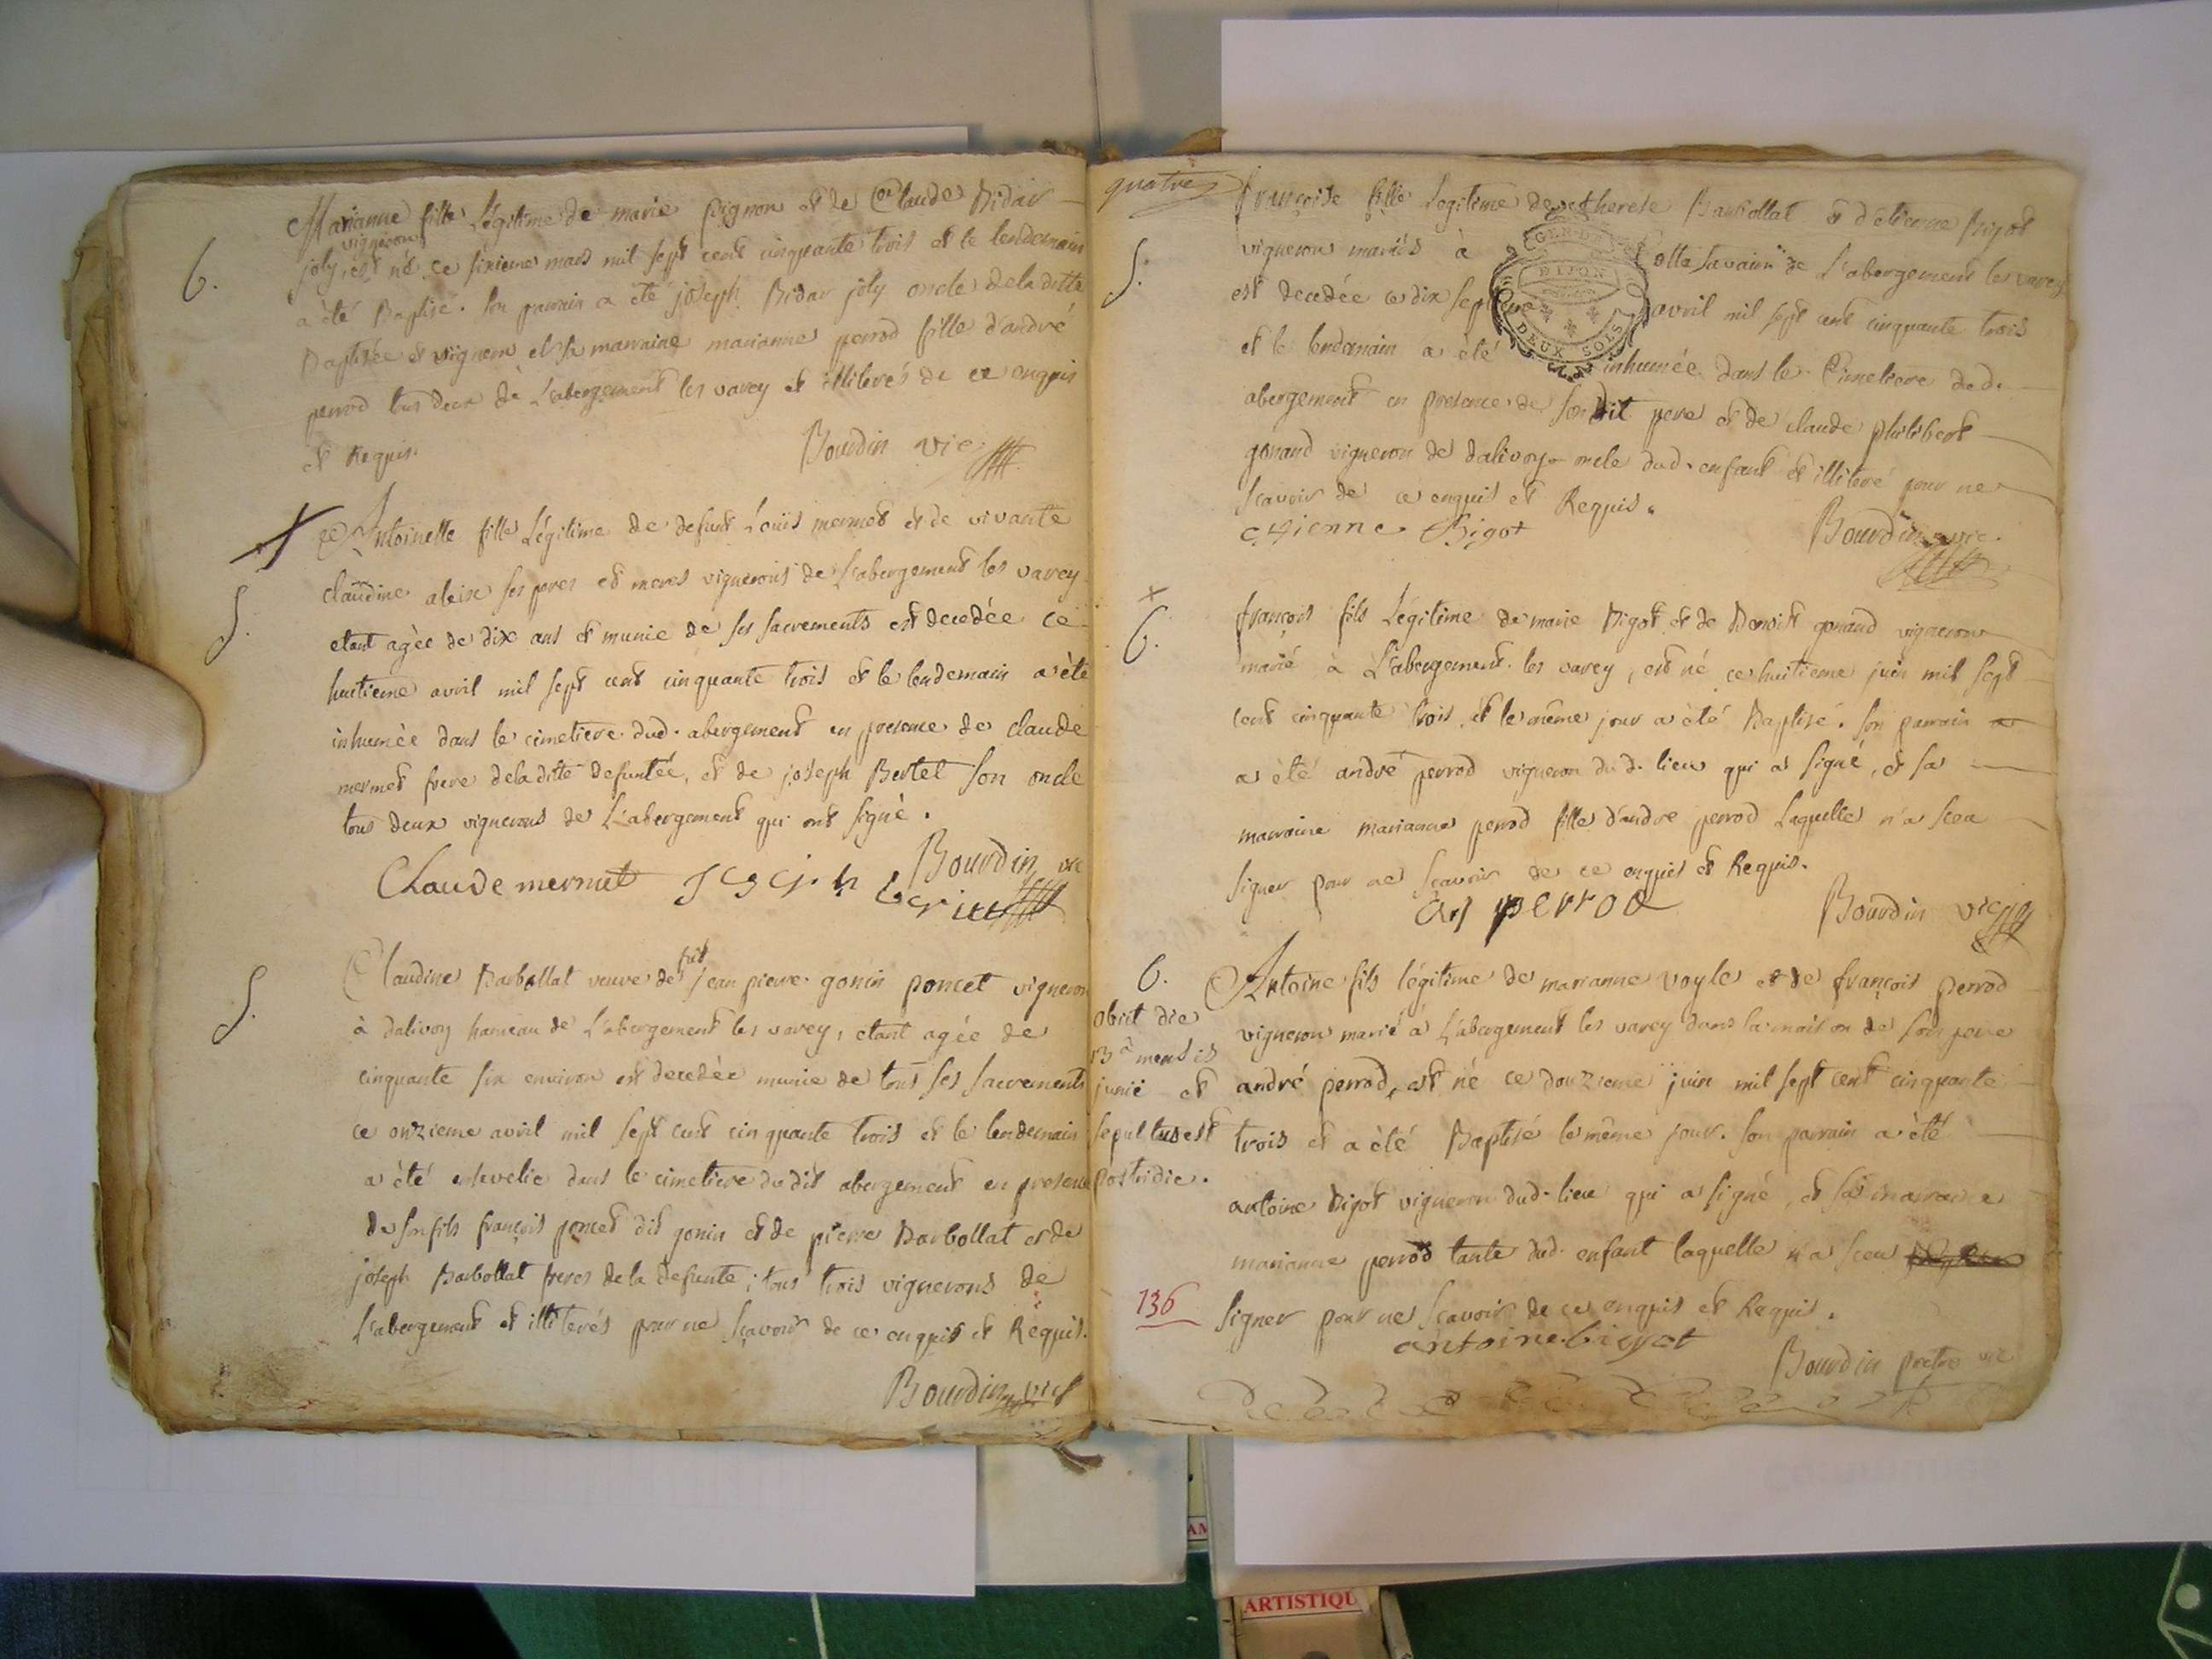 Marianne fille Légitime de marie pignon et de Claude Bidar
6.
vigneron
joly, est né ce sixieme mars mil sept cent cinquante trois et le lendemain
a été Baptisé. son parrain a été joseph Bidar joly oncle deladitte
Baptisée et vigneron et sa marraine marianne perrod fille d'andré
perrod tous deux de L'abergement les varey et illiterés de ce enquis
et Requis.
Bourdin vic
Antoinette fille Légitime de defunt Louis mermet et de vivante
claudine aleix ses peres et meres vignerons de L'abergement les varey
S.
etant agée de dix ans et munie de ses sacrements est decedée ce
huitieme avril mil sept cent cinquante trois et le lendemain a été
inhumée dans le cimetiere dud. abergement en presence de claude
mermet frere deladitte defuntée, et de joseph Bertet son oncle
tous deux vignerons de L'abergement qui ont signé.
Claude mermet
Bourdin vic
fût
Claudine Barbollat veuve de jean pierre gonin poncet vigneron
S.
à dalivoy hameau de L'abergement les varey, etant agée de
cinquante six environ est decedée munie de tous ses sacrements
ce onzieme avril mil sept cent cinquante trois et le lendemain
a été ensevelie dans le cimetiere du dit abergement en presence
de son fils françois poncet dit gonin et de pierre Barbollat et de
joseph Barbollat freres de la defunte; tous trois vignerons de
L'abergement et illiterés pour ne sçavoir de ce enquis et Requis.
Bourdin vic
quatre
françoise fille Legitime de therese Barbollat et d'etienne Bigot
S.
vigneron mariés à Cotte savarin de L'abergement les varey
GEN. DE
DIJON
DEUX SOLS
est decedée ce dix septieme avril mil sept cent cinquante trois
et le lendemain a été inhumée dans le Cimetiere dud.
abergement en presence de son dit pere et de claude philibert
gonand vigneron de dalivoy oncle dud. enfant et illiteré pour ne
scavoir de ce enquis et Requis.
etienne Bigot
Bourdin vic.
françois fils Légitime de marie Bigot et de Benoit gonand vigneron
6.
marié à L'abergement les varey, est né ce huitieme juin mil sept
cent cinquante trois et le même jour a été Baptisé. son parrain a
a été andré perrod vigneron dud. lieu qui a signé, et sa
marraine marianne perrod fille d'andre perrod Laquelle n'a sceu
signer pour ne sçavoir de ce enquis et Requis.
perrod
Bourdin vic
6.
Antoine fils légitime de marianne voyle et de françois perrod
vigneron marié à L'abergement les varey dans la maison de son pere
andré perrod, est né ce douzieme juin mil sept cent cinquante
trois et a été Baptisé le même jour. son parrain a été
antoine Bigot vigneron dud. lieu qui a signé, et sa marraine
marianne perrod tante dud. enfant laquelle n'a sceu
signer pour ne sçavoir de ce enquis et Requis.
obiit die
13ª mensis
junii et
sepultus est
postridie.
136
antoine bigot
Bourdin pretre vic
ARTISTIQU